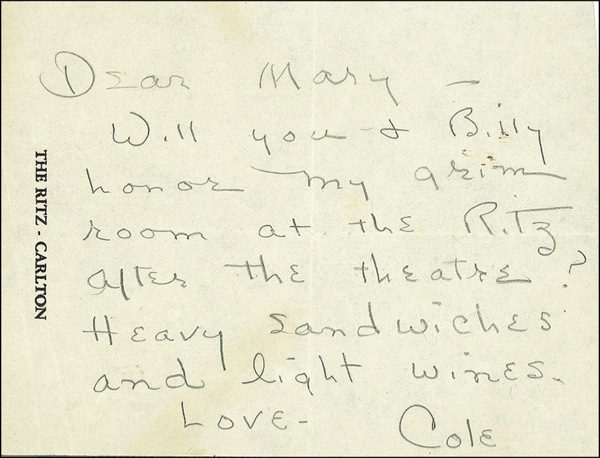 Dear Mary —
Will you & Billy
honor my grim
room at the Ritz
after the theatre?
Heavy sandwiches
and light wines.
Love - Cole
THE RITZ - CARLTON